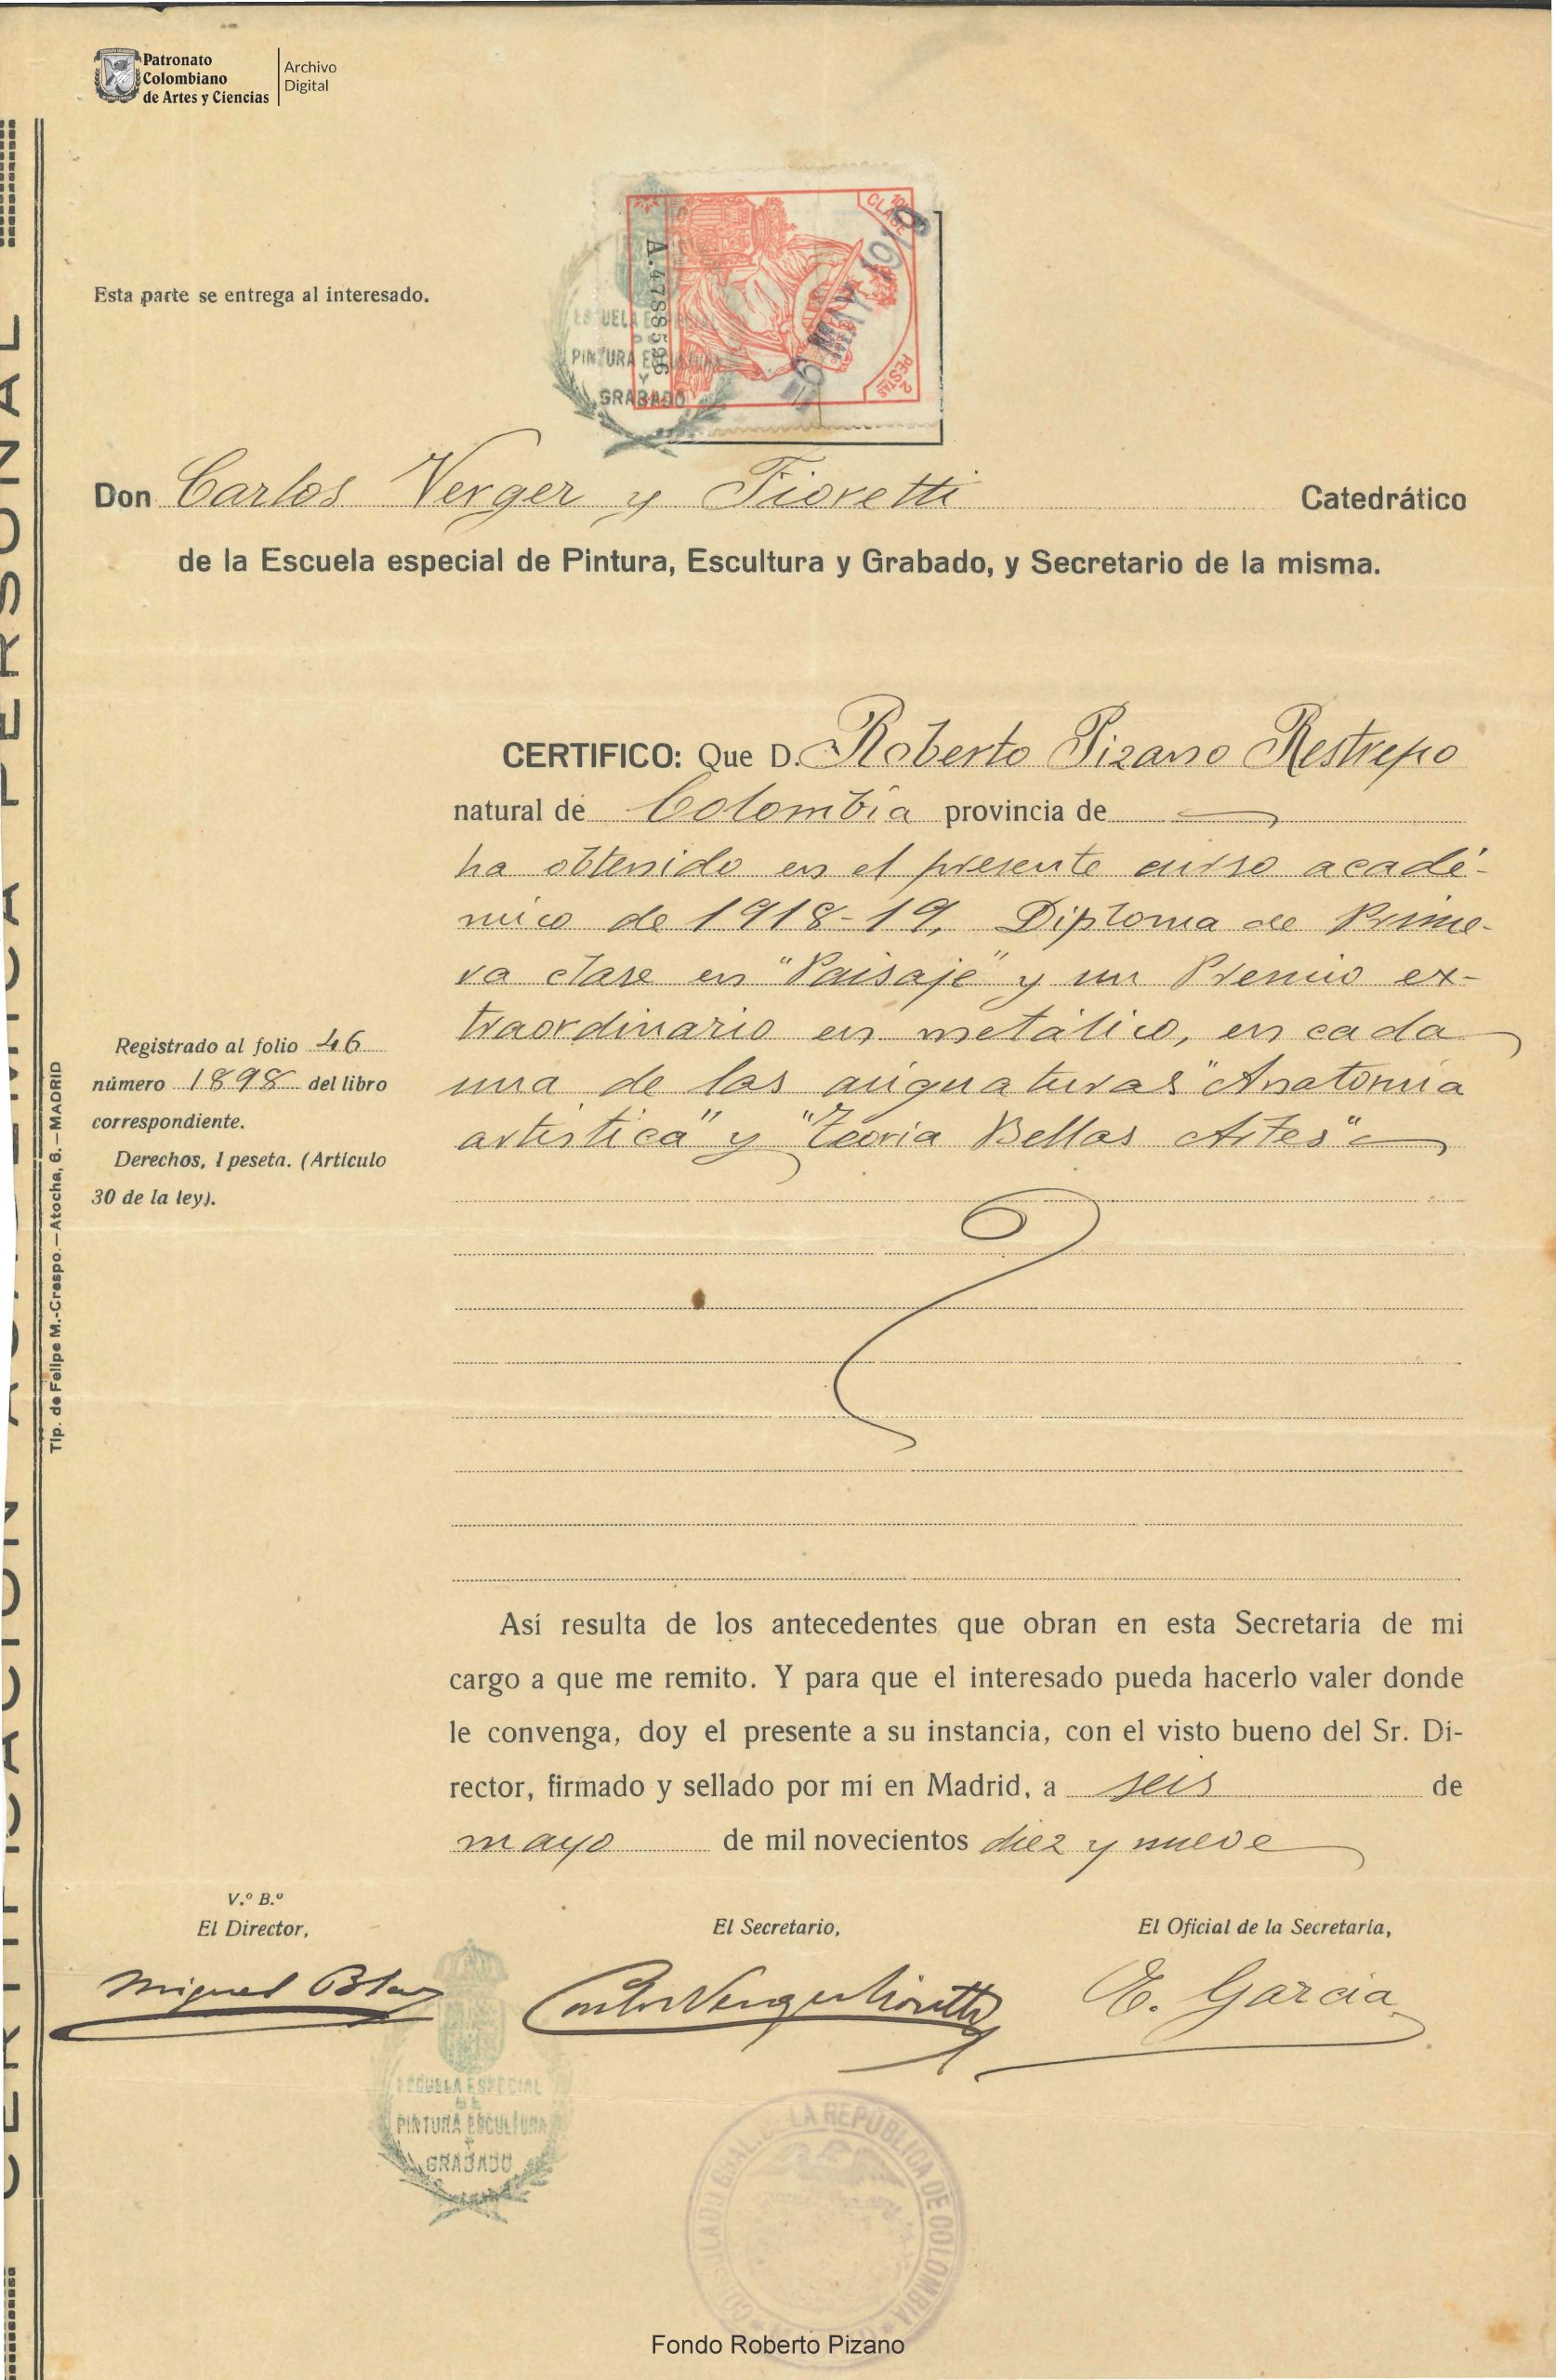 Patronato
Colombiano
de Artes y Ciencias
Archivo
Digital
CERTIFICACIÓN ACADÉMICA PERSONAL
Esta parte se entrega al interesado.
10ª
CLASE
A.4788596
2
PESTAS
-6 MAY 1919
ESCUELA ESPECIAL
DE
PINTURA ESCULTURA
Y
GRABADO
Don Carlos Verger y Fioretti Catedrático
de la Escuela especial de Pintura, Escultura y Grabado, y Secretario de la misma.
CERTIFICO: Que D. Roberto Pizano Restrepo
natural de Colombia provincia de
ha obtenido en el presente curso acadé-
mico de 1918-19, Diploma de Prime-
ra clase en "Paisaje" y un Premio ex-
traordinario en metálico, en cada
una de las asignaturas "Anatomia
artistica" y "Teoria Bellas Artes"
Registrado al folio 46
número 1898 del libro
correspondiente.
Derechos, 1 peseta. (Artículo
30 de la ley).
Tip. de Felipe M.-Crespo.—Atocha, 6.—MADRID
Así resulta de los antecedentes que obran en esta Secretaria de mi
cargo a que me remito. Y para que el interesado pueda hacerlo valer donde
le convenga, doy el presente a su instancia, con el visto bueno del Sr. Di-
rector, firmado y sellado por mí en Madrid, a seis de
mayo de mil novecientos diez y nueve
V.º B.º
El Director,
El Secretario,
El Oficial de la Secretaría,
Miguel Blay
Carlos Verger Fioretti
E. Garcia
ESCUELA ESPECIAL
DE
PINTURA ESCULTURA
Y
GRABADO
CONSULADO GRAL. DE LA REPUBLICA DE COLOMBIA
Fondo Roberto Pizano